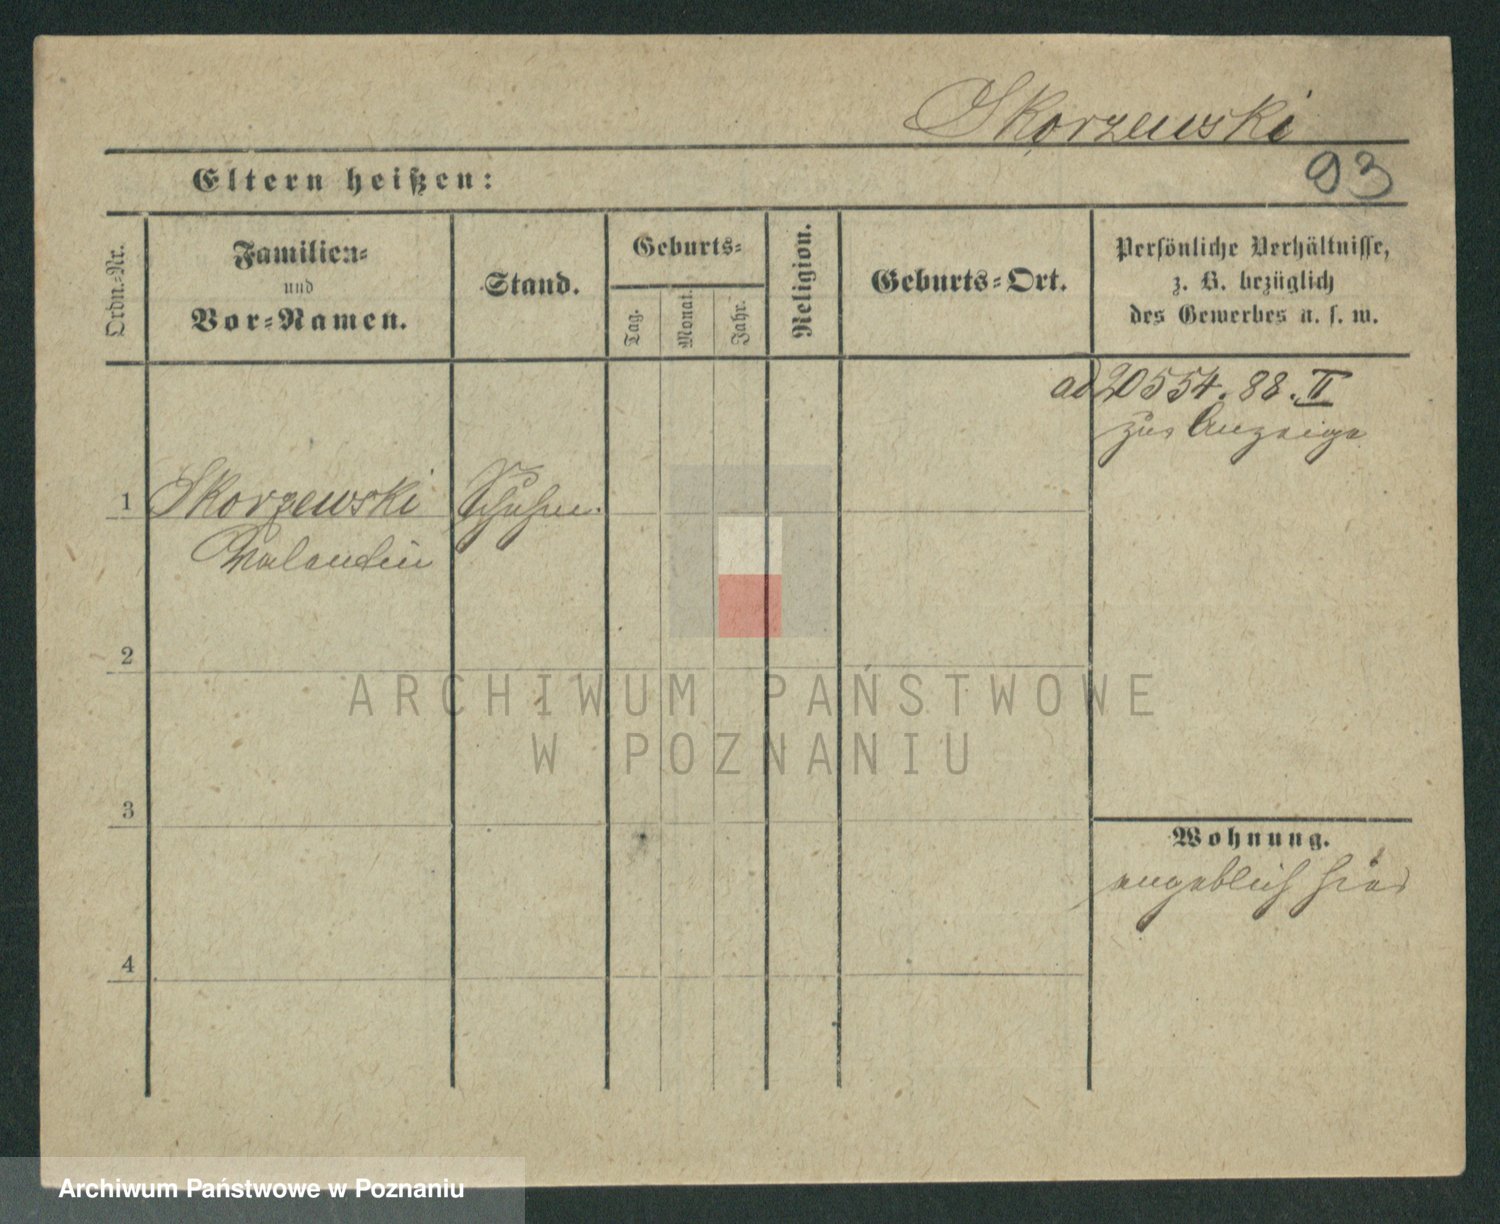 Skorzewski
93
Eltern heißen:
Ordn.-Nr.
Familien-
und
Vor-Namen.
Stand.
Geburts-
Tag.
Monat.
Jahr.
Religion.
Geburts-Ort.
Persönliche Verhältnisse,
z. B. bezüglich
des Gewerbes u. s. w.
ad 20554. 88. II
zur Anzeige
1 Skorzewski
Valentin
2
3
4
Wohnung.
angeblich hier
ARCHIWUM PAŃSTWOWE
W POZNANIU
Archiwum Państwowe w Poznaniu